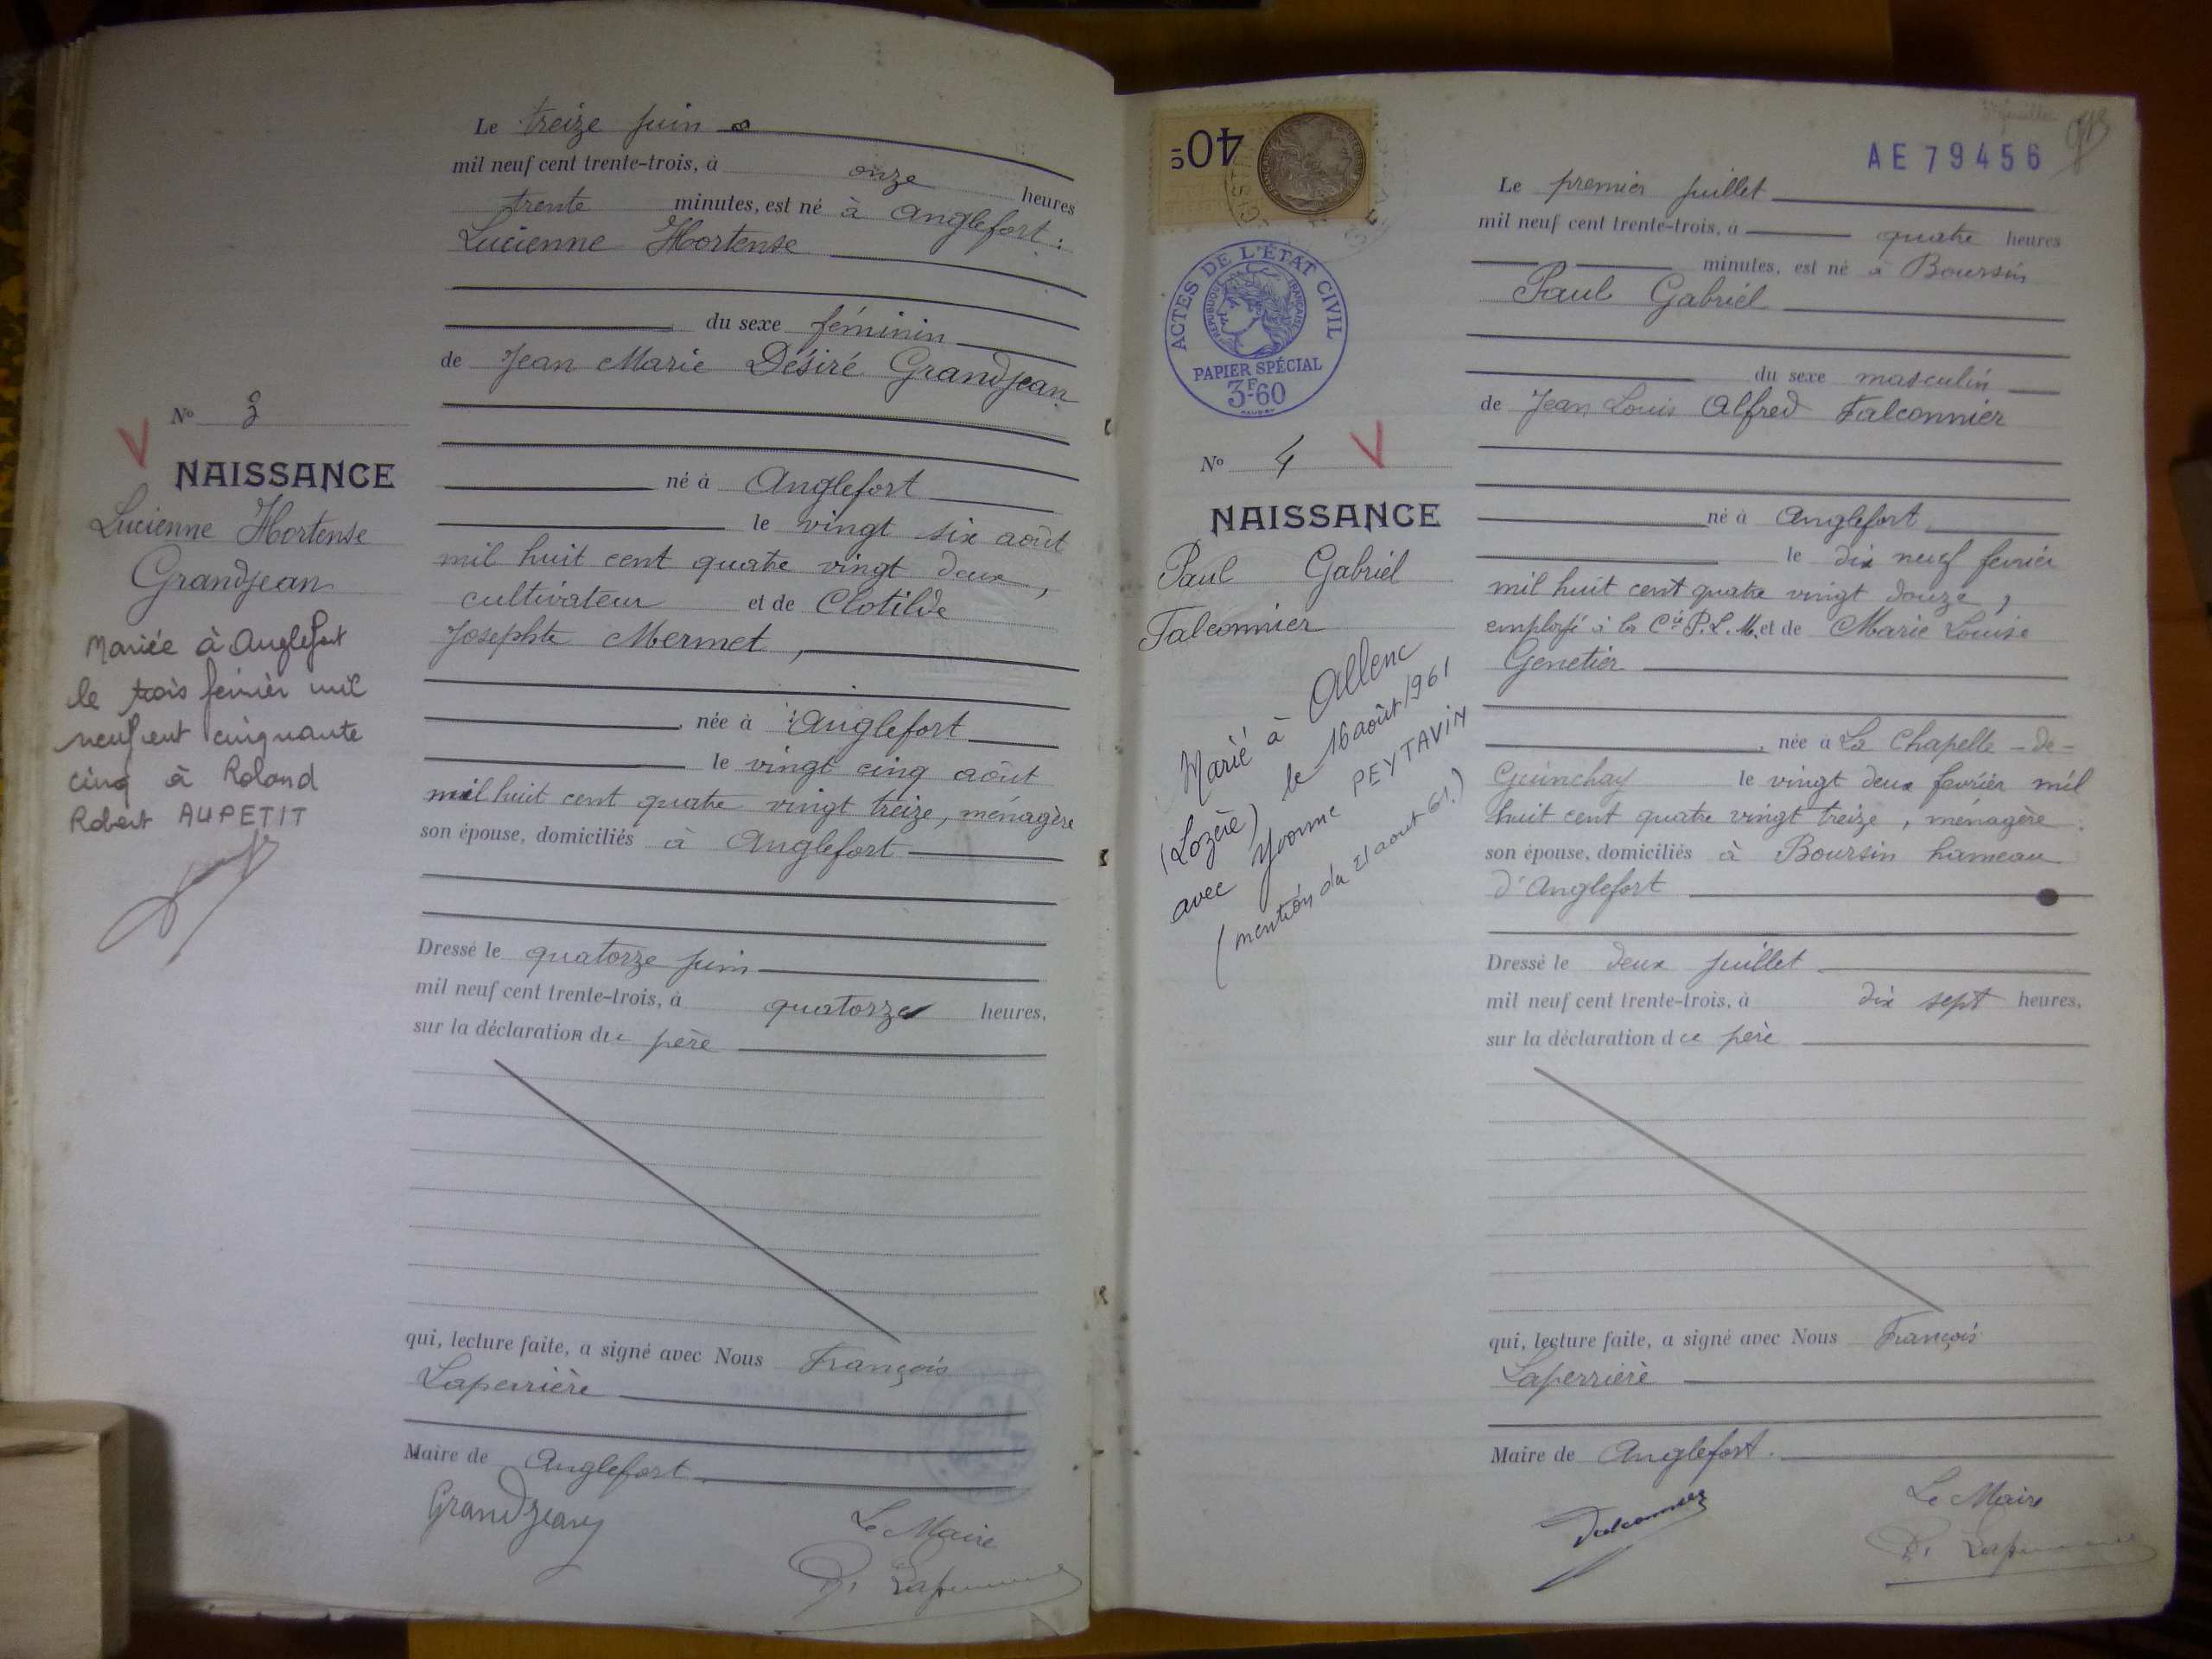 Le treize juin
mil neuf cent trente-trois, à onze heures
trente minutes, est né à Anglefort :
Lucienne Hortense
du sexe féminin
de Jean Marie Désiré Grandjean
né à Anglefort
le vingt six août
mil huit cent quatre vingt deux,
cultivateur et de Clotilde
Josephte Mermet,
née à Anglefort
le vingt cinq août
mil huit cent quatre vingt treize, ménagère
son épouse, domiciliés à Anglefort
Dressé le quatorze juin
mil neuf cent trente-trois, à quatorze heures,
sur la déclaration du père
qui, lecture faite, a signé avec Nous François
Laperrière
Maire de Anglefort
Grandjean
Le Maire
No 3
V
NAISSANCE
Lucienne Hortense
Grandjean
Mariée à Anglefort
le trois février mil
neuf cent cinquante
cinq à Roland
Robert AUPETIT
40c
ACTES DE L'ÉTAT CIVIL
RÉPUBLIQUE FRANÇAISE
PAPIER SPÉCIAL
3F60
No 4 V
NAISSANCE
Paul Gabriel
Falconnier
Marié à Allenc
(Lozère) le 16 août 1961
avec Yvonne PEYTAVIN
(mention du 21 aout 61.)
AE 79456
Le premier juillet
mil neuf cent trente-trois, à quatre heures
minutes, est né à Boursin
Paul Gabriel
du sexe masculin
de Jean Louis Alfred Falconnier
né à Anglefort
le dix neuf fevrier
mil huit cent quatre vingt douze,
employé à la Cie P.L.M. et de Marie Louise
Genetier
, née à La Chapelle-de-
Guinchay le vingt deux fevrier mil
huit cent quatre vingt treize, ménagère.
son épouse, domiciliés à Boursin hameau
d'Anglefort
Dressé le deux juillet
mil neuf cent trente-trois, à dix sept heures,
sur la déclaration du père
qui, lecture faite, a signé avec Nous François
Laperrière
Maire de Anglefort.
Falconnier
Le Maire